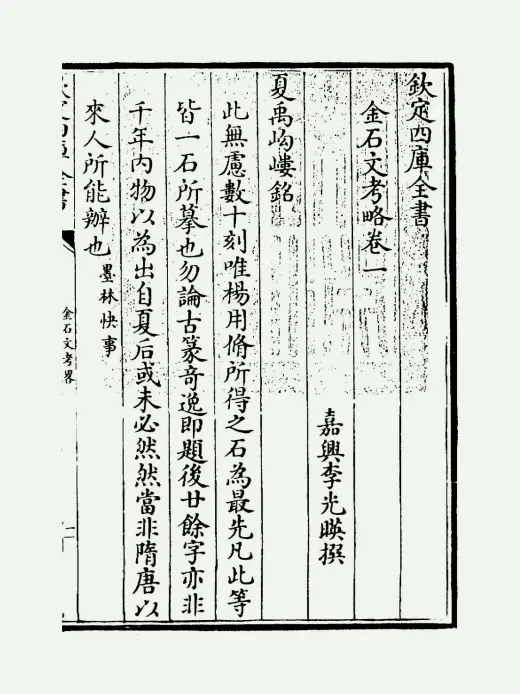 欽定四庫全書
金石文考略卷一
嘉興李光暎撰
夏禹岣嶁銘
此無慮數十刻唯楊用脩所得之石為最先凡此等
皆一石所摹也勿論古篆奇逸即題後廿餘字亦非
千年內物以為出自夏后或未必然然當非隋唐以
來人所能辦也墨林快事
欽定四庫全書
金石文考略